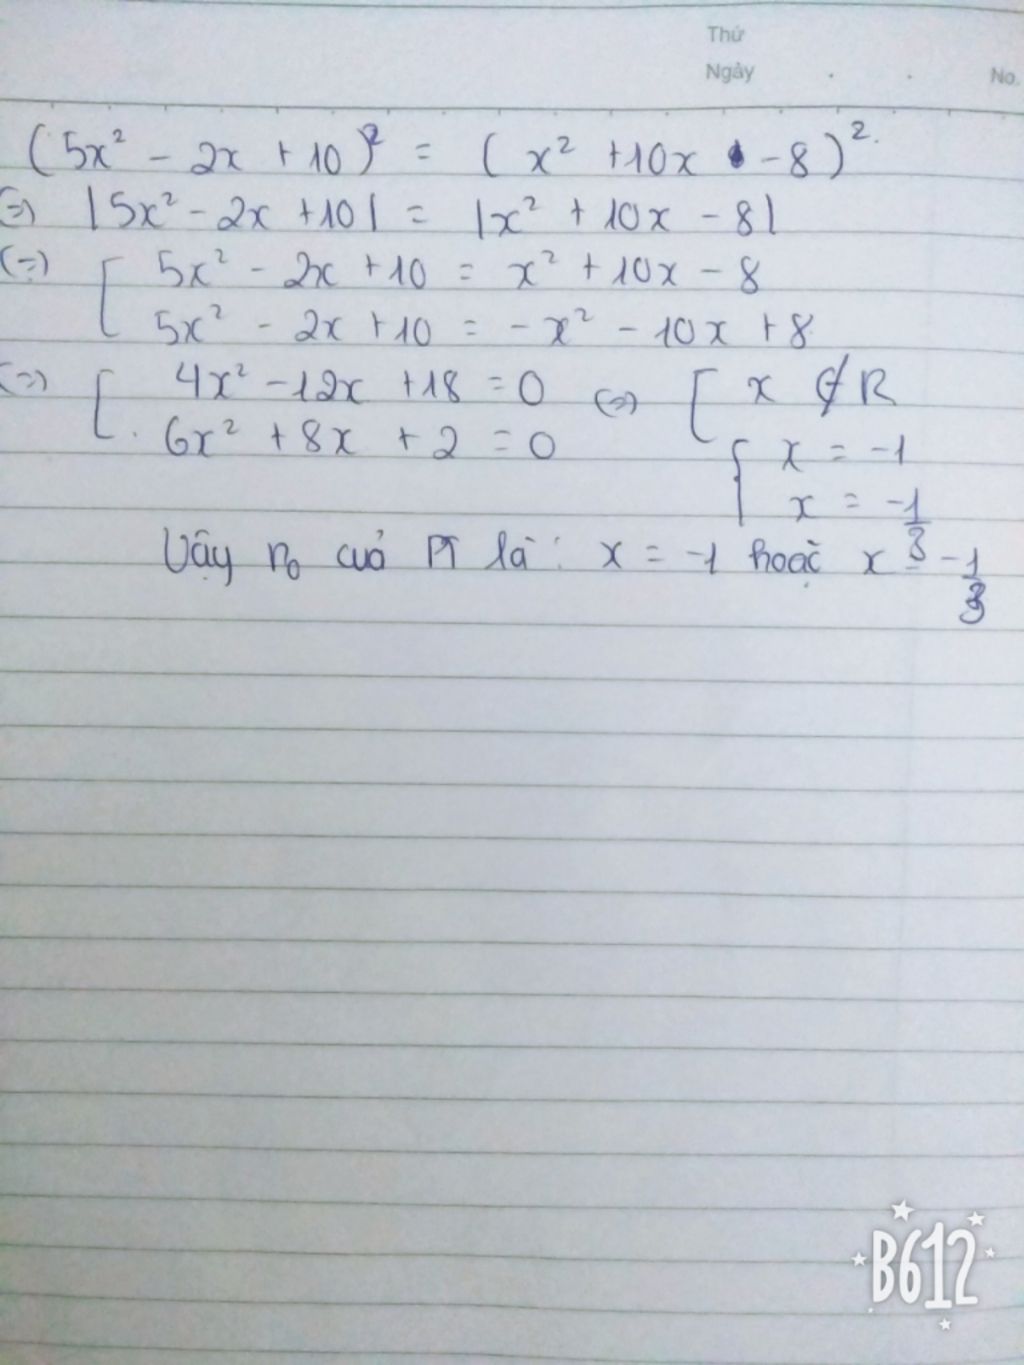 Thứ
Ngày . . No.
(5x² - 2x + 10)² = (x² + 10x - 8)²
⇔ |5x² - 2x + 10| = |x² + 10x - 8|
⇔ [ 5x² - 2x + 10 = x² + 10x - 8
5x² - 2x + 10 = -x² - 10x + 8
⇔ [ 4x² - 12x + 18 = 0 ⇔ [ x ∉ R
6x² + 8x + 2 = 0 { x = -1
x = -1/3
Vậy no cuả PT là : x = -1 hoặc x = -1/3
B612